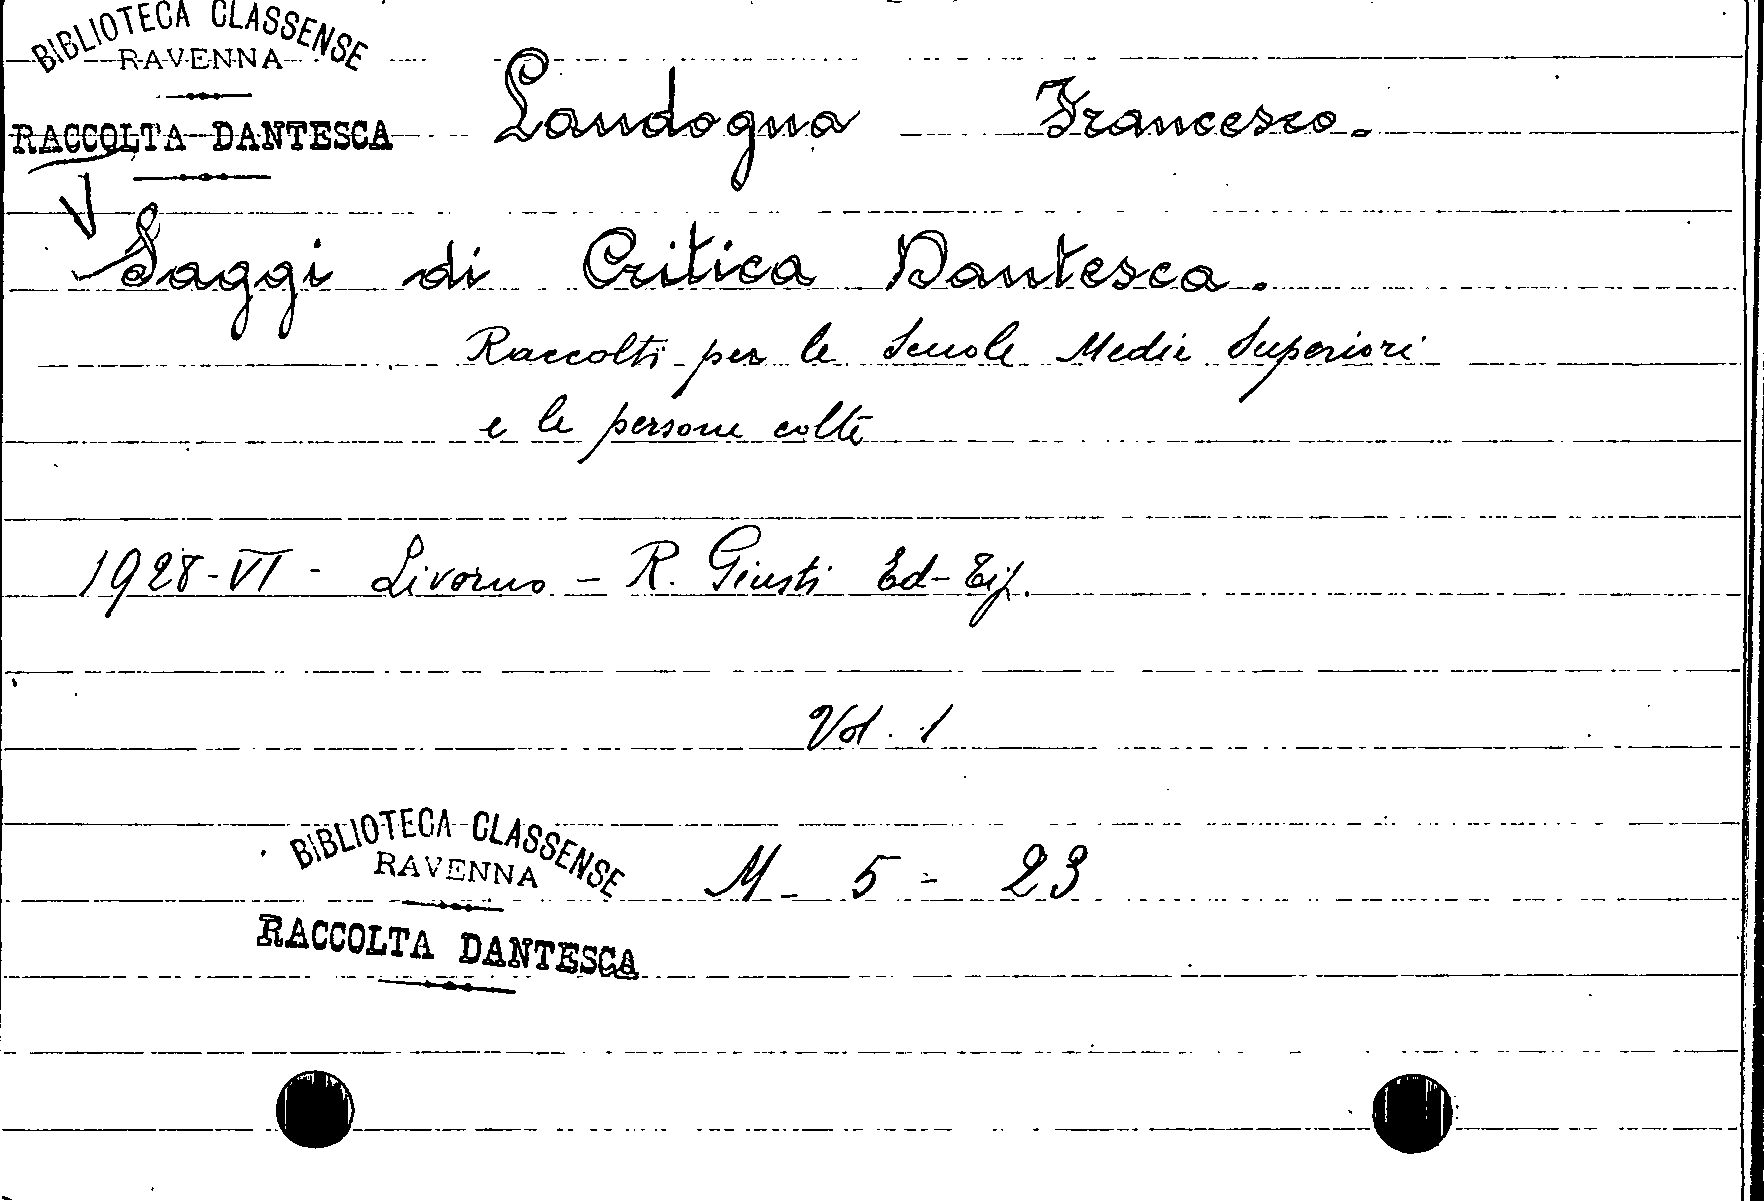 BIBLIOTECA CLASSENSE
RAVENNA
RACCOLTA DANTESCA
Landogna Francesco.
Saggi di Critica Dantesca.
Raccolti per le Scuole Medie Superiori
e le persone colte
1928-VI - Livorno - R. Giusti Ed-Tip.
Vol. 1
BIBLIOTECA CLASSENSE
RAVENNA
RACCOLTA DANTESCA
M - 5 - 23